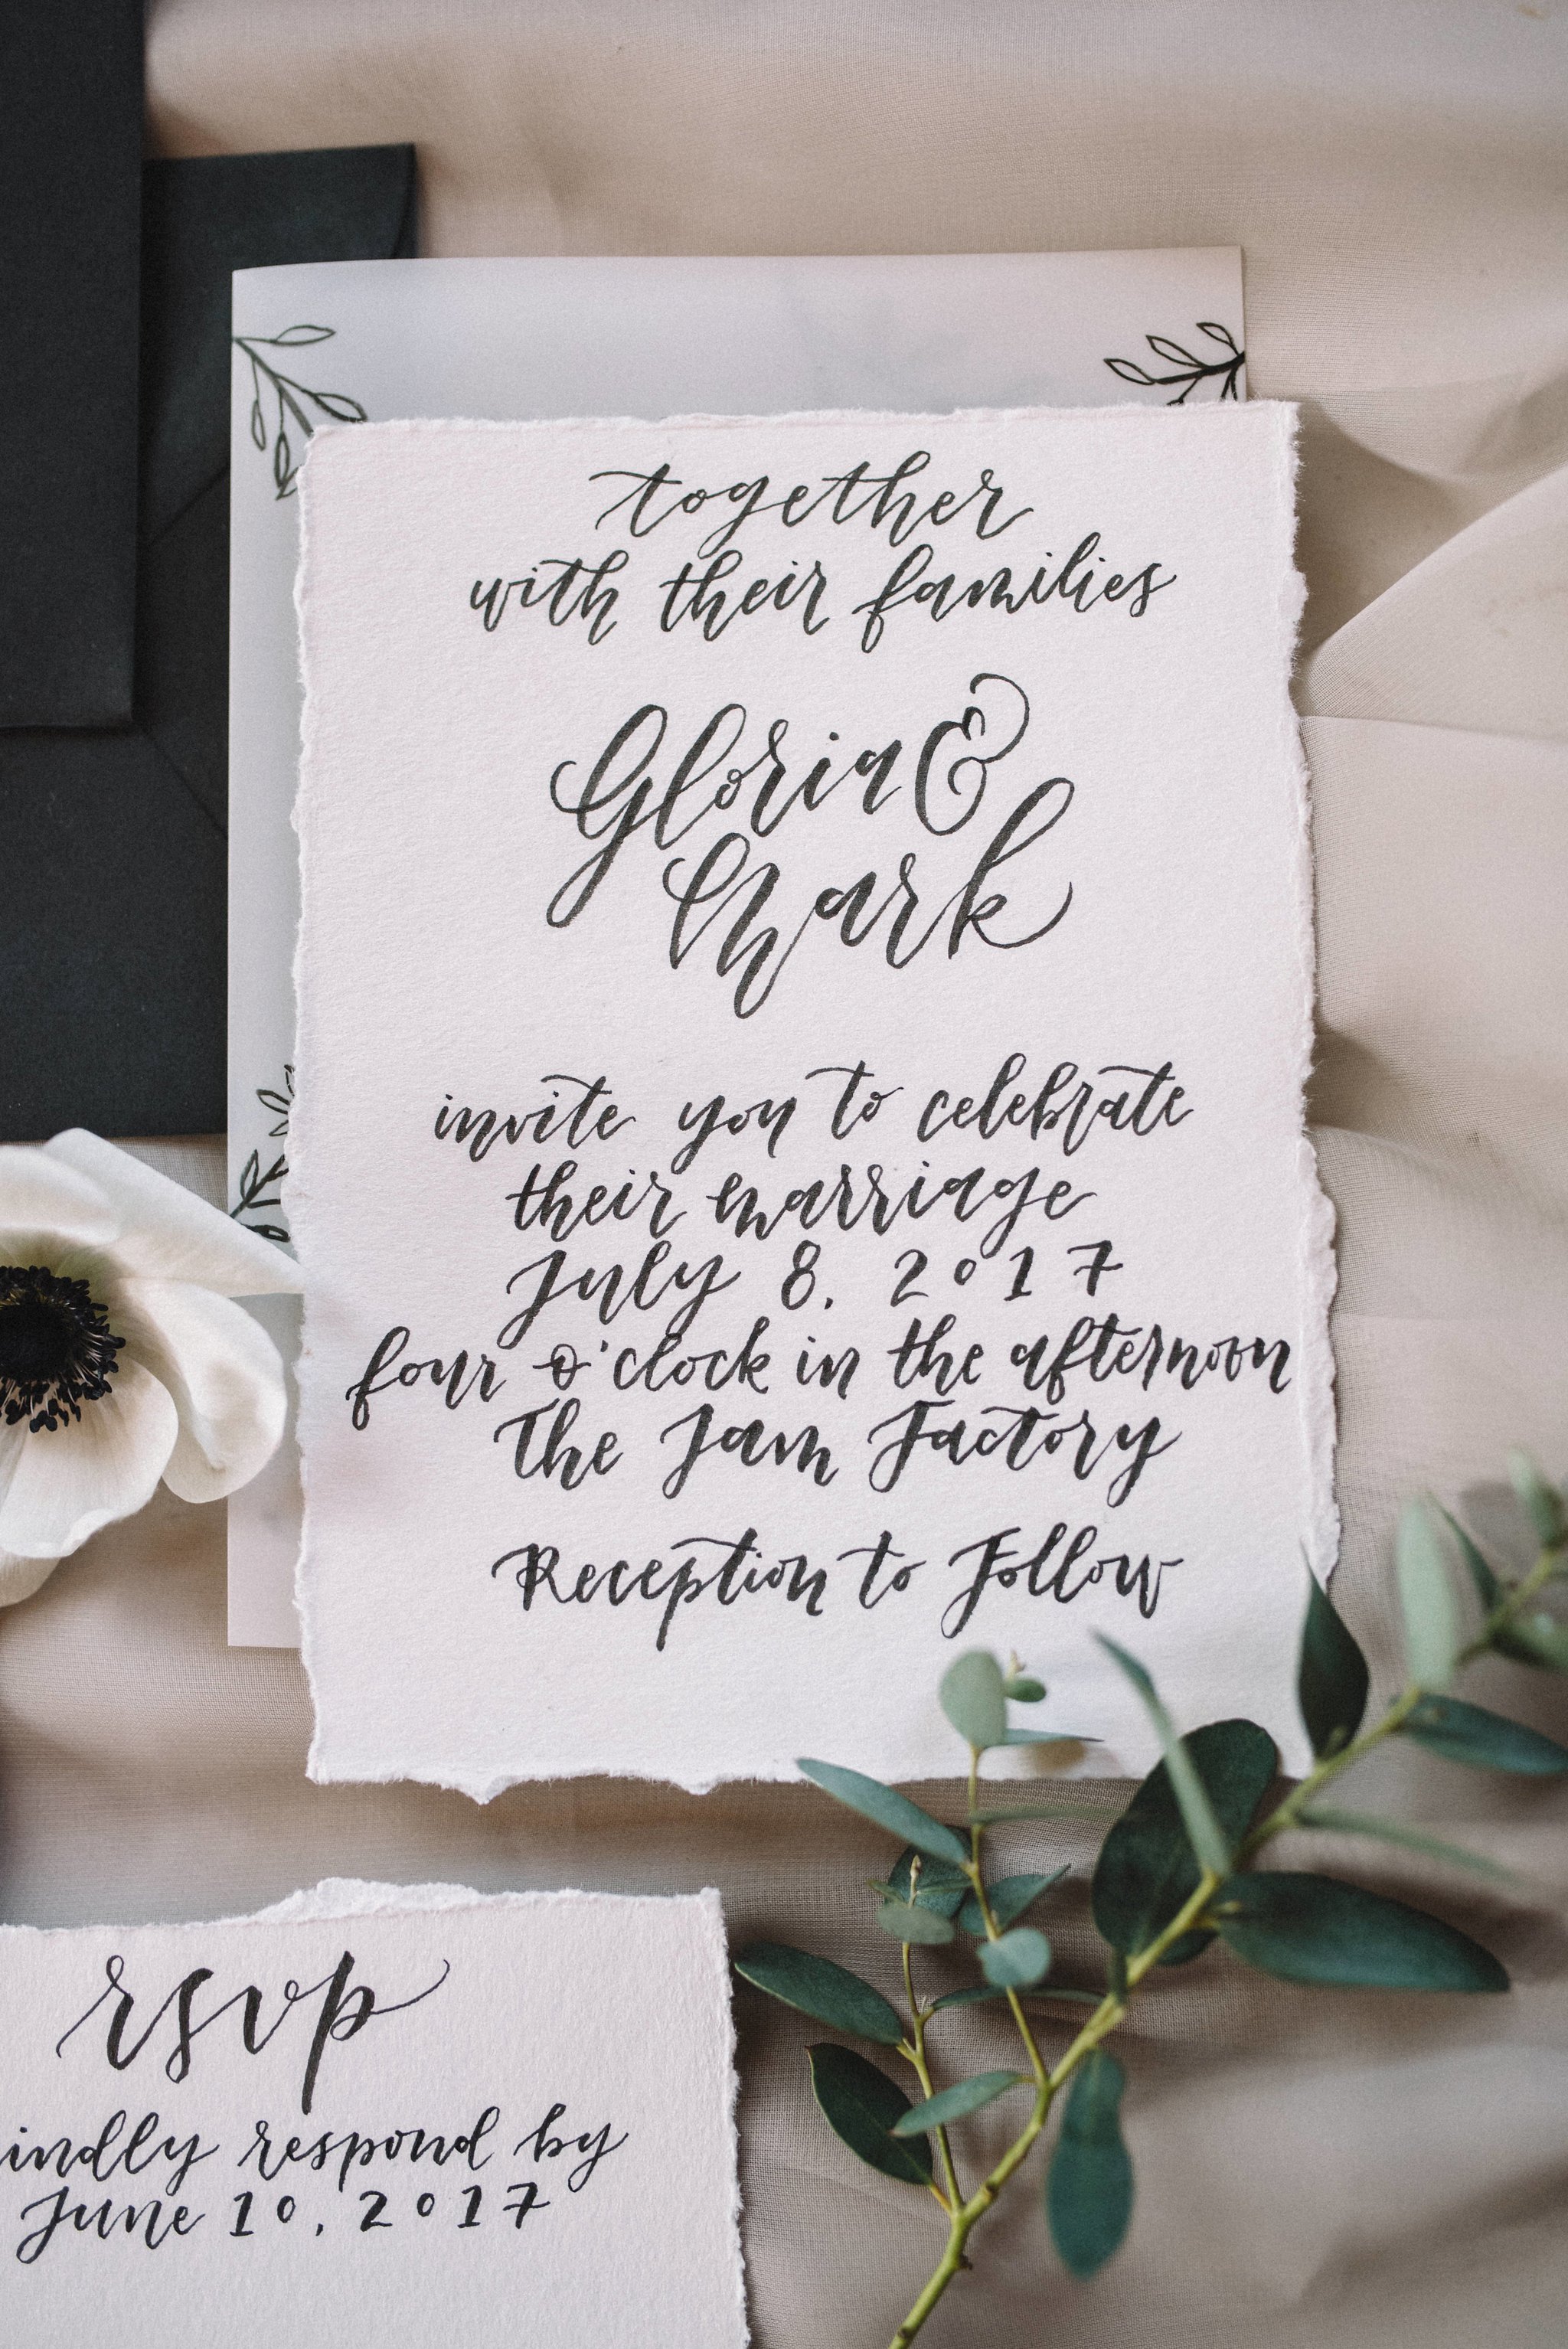 together
with their families
Gloria &
Mark
invite you to celebrate
their marriage
July 8, 2017
four o'clock in the afternoon
The Jam Factory
Reception to Follow
rsvp
indly respond by
June 10, 2017